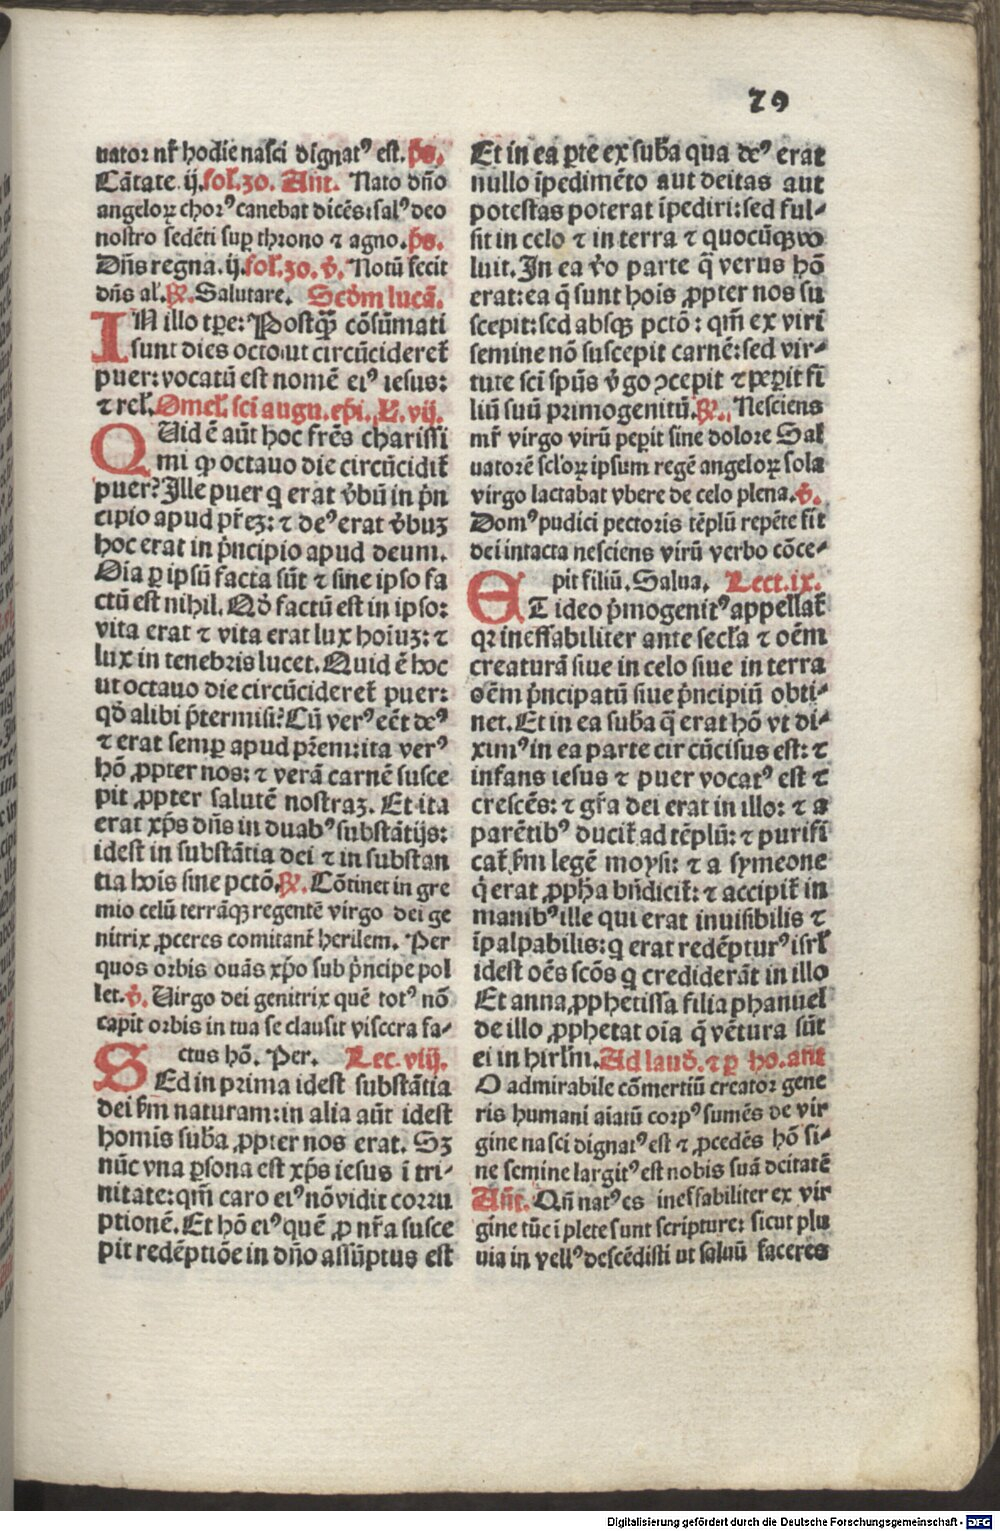 79
uator nr̄ hodie nasci dignatꝰ est. p̄s.
Cātate .ij. fol. 30. Añt. Nato dn̄o
angeloꝝ chorꝰ canebat dicēs: salꝰ deo
nostro sedēti suꝑ throno ⁊ agno. p̄s.
Dn̄s regna. ij. fol. 30. v̄. Notū fecit
dn̄s al̄. ℟. Salutare. Scd̄m lucā.
IN illo tꝑe: Postqꝫ cōsūmati
sunt dies octo ut circūcideret̄
puer: vocatū est nomē eiꝰ iesus:
⁊ rel̄. Omel̄. sci augu. ep̄i. L. vij.
QUid ē aūt hoc frēs charissi
mi ꝙ octauo die circūcidit̄
puer? Ille puer q erat v̄bū in p̄n
cipio apud pr̄eꝫ: ⁊ deꝰ erat v̄buꝫ
hoc erat in p̄ncipio apud deum.
Oīa ꝑ ipsū facta sūt ⁊ sine ipso fa
ctū est nihil. Qd̄ factū est in ipso:
vita erat ⁊ vita erat lux hoīuꝫ: ⁊
lux in tenebris lucet. Quid ē hoc
ut octauo die circūcideret̄ puer:
qd̄ alibi p̄termisi? Cū verꝰ eēt deꝰ
⁊ erat semꝑ apud pr̄em: ita verꝰ
hō ꝓpter nos: ⁊ verā carnē susce
pit ꝓpter salutē nostraꝫ. Et ita
erat xp̄s dn̄s in duabꝰ substātijs:
idest in substātia dei ⁊ in substan
tia hoīs sine pctō. ℟. Cōtinet in gre
mio celū terrāqꝫ regentē virgo dei ge
nitrix ꝓceres comitant̄ herilem. Per
quos orbis ouās xp̄o sub p̄ncipe pol
let. v̄. Uirgo dei genitrix quē totꝰ nō
capit orbis in tua se clausit viscera fa-
ctus hō. Per. Lec. viij.
SEd in prima idest substātia
dei s̄m naturam: in alia aūt idest
homīs sub̄a ꝓpter nos erat. Sꝫ
nūc vna ꝑsona est xp̄s iesus ī tri-
nitate: qm̄ caro eiꝰ nō vidit corru
ptionē. Et hō eiꝰ quē ꝓ nr̄a susce
pit redēptiōe in dn̄o assūptus est
Et in ea ꝑte ex sub̄a qua deꝰ erat
nullo īpedimēto aut deitas aut
potestas poterat īpediri: sed ful-
sit in celo ⁊ in terra ⁊ quocūqꝫ vo
luit. In ea v̄o parte q̄ verus hō
erat: ea q̄ sunt hoīs ꝓpter nos su
scepit: sed absqꝫ pctō: qm̄ ex viri
semine nō suscepit carnē: sed vir-
tute sci spūs v̄go ꝯcepit ⁊ peꝑit fi
liū suū primogenitū. ℟. Nesciens
mr̄ virgo virū peꝑit sine dolore Sal
uatorē sclꝝ ipsum regē angeloꝝ sola
virgo lactabat vbere de celo plena. v̄.
Domꝰ pudici pectoris tēplū repēte fit
dei intacta nesciens virū verbo cōce-
pit filiū. Salua. Lect. ix.
ET ideo p̄mogenitꝰ appellat̄
qꝛ ineffabiliter ante secl̄a ⁊ oēm
creaturā siue in celo siue in terra
oēm p̄ncipatū siue p̄ncipiū obti-
net. Et in ea sub̄a q̄ erat hō vt di-
ximꝰ in ea parte circūcisus est: ⁊
infans iesus ⁊ puer vocatꝰ est ⁊
crescēs: ⁊ gr̄a dei erat in illo: ⁊ a
parētibꝰ ducit̄ ad tēplū: ⁊ purifi
cat̄ s̄m legē moysi: ⁊ a symeone
q̄ erat ꝓph̄a bn̄dicit̄: ⁊ accipit̄ in
manibꝰ ille qui erat inuisibilis ⁊
īpalpabilis: q erat redēpturꝰ isrl̄
idest oēs scōs q crediderāt in illo
Et anna ꝓphetissa filia phanuel
de illo ꝓphetat oīa q̄ vētura sūt
ei in hirlm̄. Ad laud̄. ⁊ ꝑ ho. añt
O admirabile cōmertiū creator gene
ris humani aīatū corpꝰ sumēs de vir
gine nasci dignatꝰ est ⁊ ꝓcedēs hō si-
ne semine largitꝰ est nobis suā deitatē
Añt. Qn̄ natꝰ es ineffabiliter ex vir
gine tūc īplete sunt scripture: sicut plu
uia in vellꝰ descēdisti ut saluū faceres
Digitalisierung gefördert durch die Deutsche Forschungsgemeinschaft - DFG